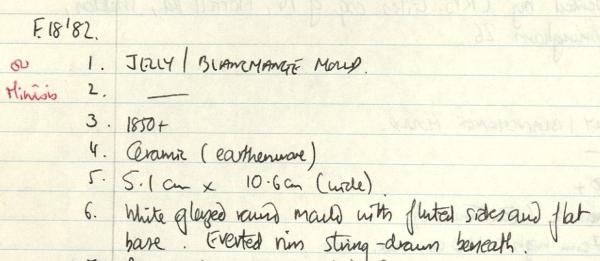 F.18'82.
1. JELLY / BLANCMANGE MOULD.
2. —
3. 1850+
4. Ceramic (earthenware)
5. 5.1 cm x 10.6cm (wide).
6. White glazed round mould with fluted sides and flat
base. Everted rim string-drawn beneath.